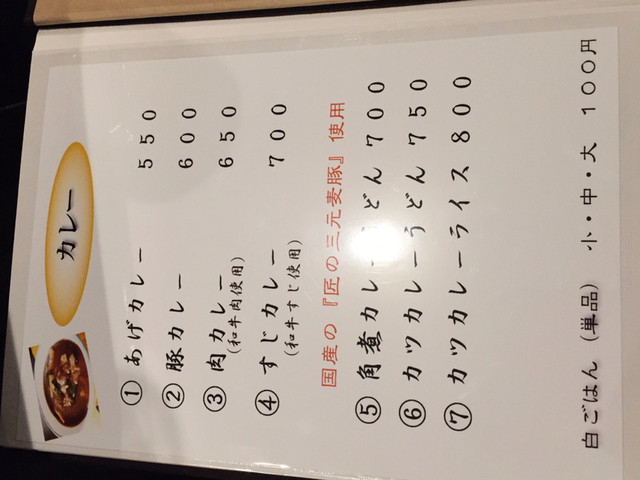 カレー
① あげカレー 550
② 豚カレー 600
③ 肉カレー 650
(和牛肉使用)
④ すじカレー 700
(和牛すじ使用)
国産の『匠の三元麦豚』使用
⑤ 角煮カレーうどん 700
⑥ カツカレーうどん 750
⑦ カツカレーライス 800
白ごはん (単品) 小・中・大 100円